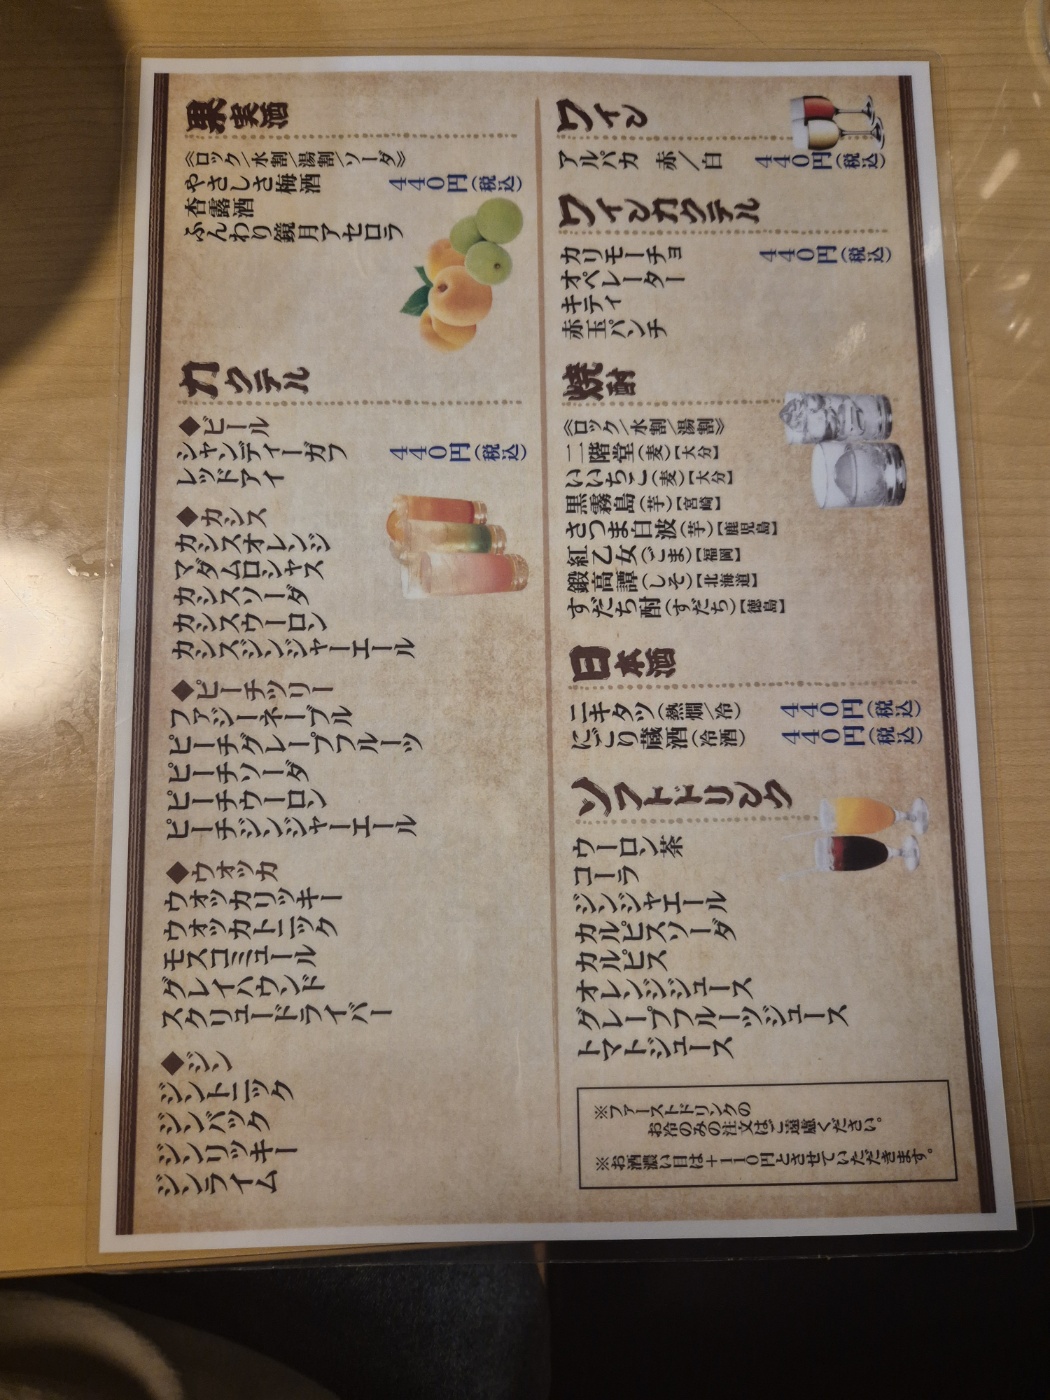 ワイン
アルパカ 赤／白 ４４０円（税込）
ワインカクテル
カリモーチョ ４４０円（税込）
オペレーター
キティ
赤玉パンチ
焼酎
《ロック／水割／湯割》
二階堂（麦）【大分】
いいちこ（麦）【大分】
黒霧島（芋）【宮崎】
さつま白波（芋）【鹿児島】
紅乙女（ごま）【福岡】
鍛高譚（しそ）【北海道】
すだち酎（すだち）【徳島】
日本酒
ニキタツ（熱燗／冷） ４４０円（税込）
にごり蔵酒（冷酒） ４４０円（税込）
ソフトドリンク
ウーロン茶
コーラ
ジンジャエール
カルピスソーダ
カルピス
オレンジジュース
グレープフルーツジュース
トマトジュース
※ファーストドリンクの
お冷のみの注文はご遠慮ください。
※お酒濃い目は＋１１０円とさせていただきます。
果実酒
《ロック／水割／湯割／ソーダ》
やさしさ梅酒 ４４０円（税込）
杏露酒
ふんわり鏡月アセロラ
カクテル
◆ビール
シャンディーガフ ４４０円（税込）
レッドアイ
◆カシス
カシスオレンジ
マダムロシャス
カシスソーダ
カシスウーロン
カシスジンジャーエール
◆ピーチツリー
ファジーネーブル
ピーチグレープフルーツ
ピーチソーダ
ピーチウーロン
ピーチジンジャーエール
◆ウオッカ
ウオッカリッキー
ウオッカトニック
モスコミュール
グレイハウンド
スクリュードライバー
◆ジン
ジントニック
ジンバック
ジンリッキー
ジンライム